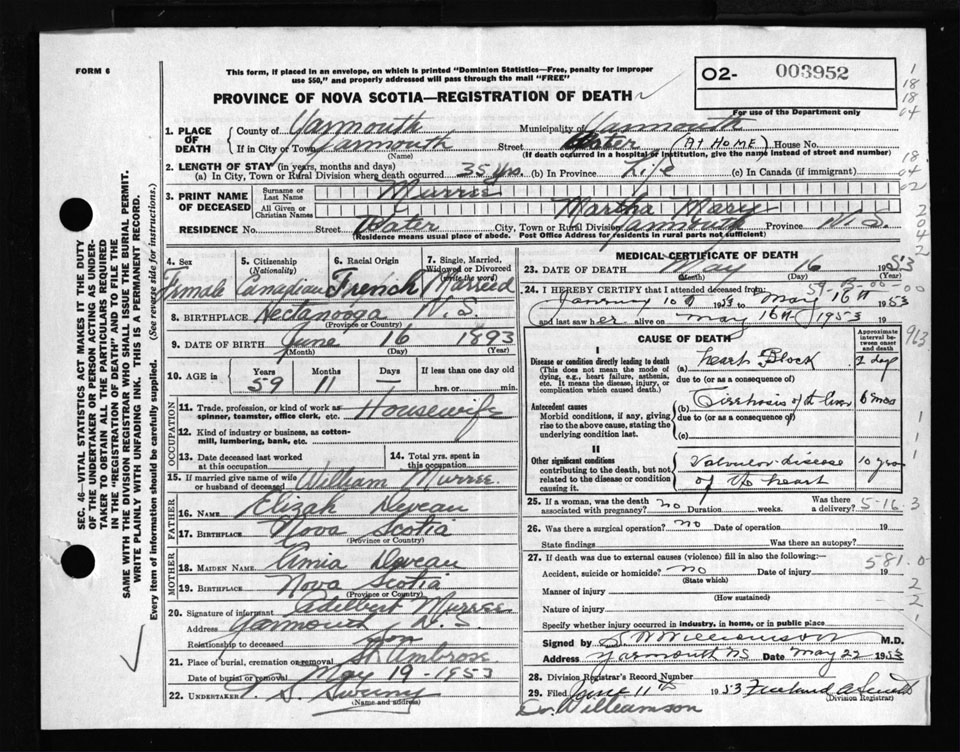 FORM 6
This form, if placed in an envelope, on which is printed "Dominion Statistics—Free, penalty for improper
use $50," and properly addressed will pass through the mail "FREE"
O2- 003952
For use of the Department only
PROVINCE OF NOVA SCOTIA—REGISTRATION OF DEATH
1. PLACE OF DEATH County of Yarmouth Municipality of Yarmouth
If in City or Town Yarmouth (Name) Street Water (At HOME) House No.
(If death occurred in a hospital or institution, give the name instead of street and number)
2. LENGTH OF STAY (in years, months and days)
(a) In City, Town or Rural Division where death occurred 35 yrs. (b) In Province Life (c) In Canada (if immigrant)
3. PRINT NAME OF DECEASED Surname or Last Name Murree
All Given or Christian Names Martha Mary
RESIDENCE No. Street Water City, Town or Rural Division Yarmouth Province N.S.
(Residence means usual place of abode. Post Office Address for residents in rural parts not sufficient)
4. Sex Female
5. Citizenship (Nationality) Canadian
6. Racial Origin French
7. Single, Married, Widowed or Divorced (write the word) Married
8. BIRTHPLACE Hectanooga N.S.
(Province or Country)
9. DATE OF BIRTH June 16 1893
(Month) (Day) (Year)
10. AGE in Years 59 Months 11 Days — If less than one day old hrs. or min.
OCCUPATION
11. Trade, profession, or kind of work as spinner, teamster, office clerk, etc. Housewife
12. Kind of industry or business, as cotton-mill, lumbering, bank, etc.
13. Date deceased last worked at this occupation
14. Total yrs. spent in this occupation
15. If married give name of wife or husband of deceased William Murree
FATHER
16. NAME Elizah Deveau
17. BIRTHPLACE Nova Scotia
(Province or Country)
MOTHER
18. MAIDEN NAME Deveau
19. BIRTHPLACE Nova Scotia
(Province or Country)
20. Signature of informant Adelbert Murree
Address Yarmouth N.S.
Relationship to deceased son
21. Place of burial, cremation or removal St. Ambrose
Date of burial or removal May 19-1953
22. UNDERTAKER S. Sweeny
(Name and address)
MEDICAL CERTIFICATE OF DEATH
23. DATE OF DEATH May 16 1953
(Month) (Day) (Year)
24. I HEREBY CERTIFY that I attended deceased from:
January 10 1953 to May 16th 1953
and last saw her alive on May 16th 1953
CAUSE OF DEATH
Approximate interval between onset and death
I
Disease or condition directly leading to death
(This does not mean the mode of dying, e.g., heart failure, asthenia, etc. It means the disease, injury, or complication which caused death.)
(a) Heart Block
due to (or as a consequence of)
Antecedent causes
Morbid conditions, if any, giving rise to the above cause, stating the underlying condition last.
(b) Cirrhosis of the liver 6 mos
due to (or as a consequence of)
(c)
II
Other significant conditions
contributing to the death, but not related to the disease or condition causing it.
Valvular disease of the heart 10 years
25. If a woman, was the death associated with pregnancy? no Duration weeks. Was there a delivery?
5-16 3
26. Was there a surgical operation? no Date of operation 19
State findings Was there an autopsy?
27. If death was due to external causes (violence) fill in also the following:—
581.0
Accident, suicide or homicide? no Date of injury 19
(State which)
Manner of injury
(How sustained)
Nature of injury
Specify whether injury occurred in industry, in home, or in public place
Signed by S W Williamson M.D.
Address Yarmouth NS Date May 22 1953
28. Division Registrar's Record Number
29. Filed June 11th 1953
(Division Registrar)
Dr. Williamson
SEC. 46—VITAL STATISTICS ACT MAKES IT THE DUTY
OF THE UNDERTAKER OR PERSON ACTING AS UNDER-
TAKER TO OBTAIN ALL THE PARTICULARS REQUIRED
IN THE "REGISTRATION OF DEATH" AND TO FILE THE
SAME WITH THE DIVISION REGISTRAR WHO SHALL ISSUE THE BURIAL PERMIT.
WRITE PLAINLY WITH UNFADING INK. THIS IS A PERMANENT RECORD.
Every item of information should be carefully supplied. (See reverse side for instructions.)